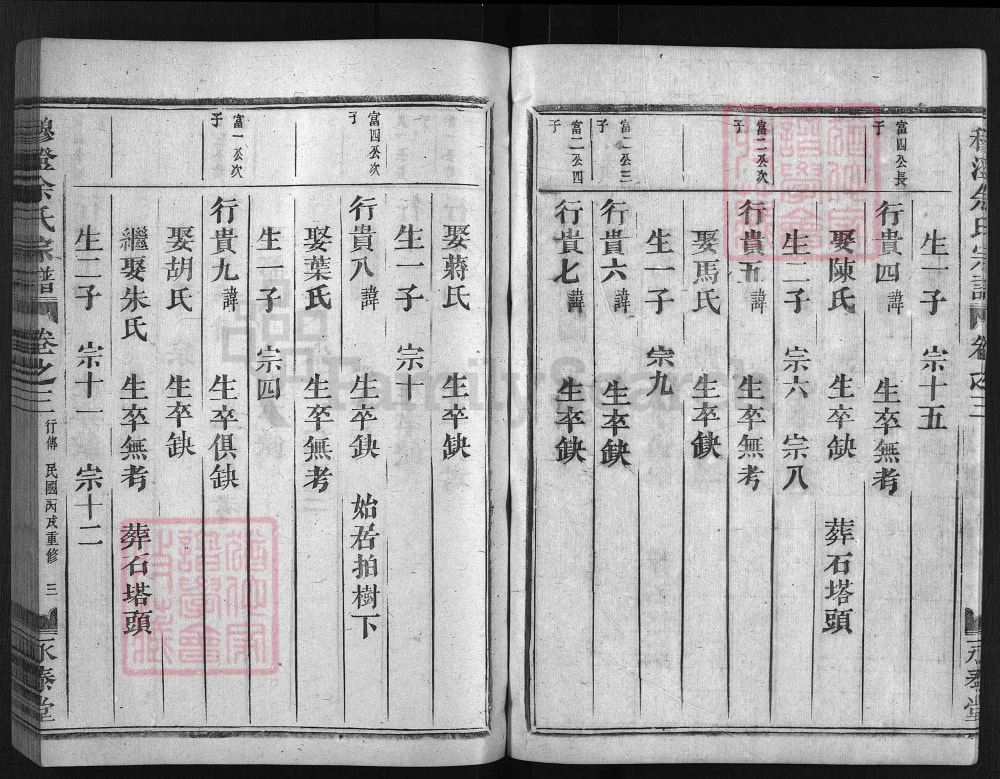 余氏宗譜 卷之三 永泰堂
生一子 宗十五
富四公長子
行貴四 諱 生卒無考
娶陳氏 生卒缺 葬石塔頭
生二子 宗六 宗八
富二公次子
行貴五 諱 生卒無考
娶馬氏 生卒缺
生一子 宗九
富二公三子
行貴六 諱 生卒缺
富二公四子
行貴七 諱 生卒缺
娶蔣氏 生卒缺
生一子 宗十
富四公次子
行貴八 諱 生卒缺 始居拍樹下
娶葉氏 生卒無考
生一子 宗四
富一公次子
行貴九 諱 生卒俱缺
娶胡氏 生卒缺
繼娶朱氏 生卒無考 葬石塔頭
生二子 宗十一 宗十二
余氏宗譜 卷之三 行傳 民國丙戌重修 三 永泰堂
FamilySearch